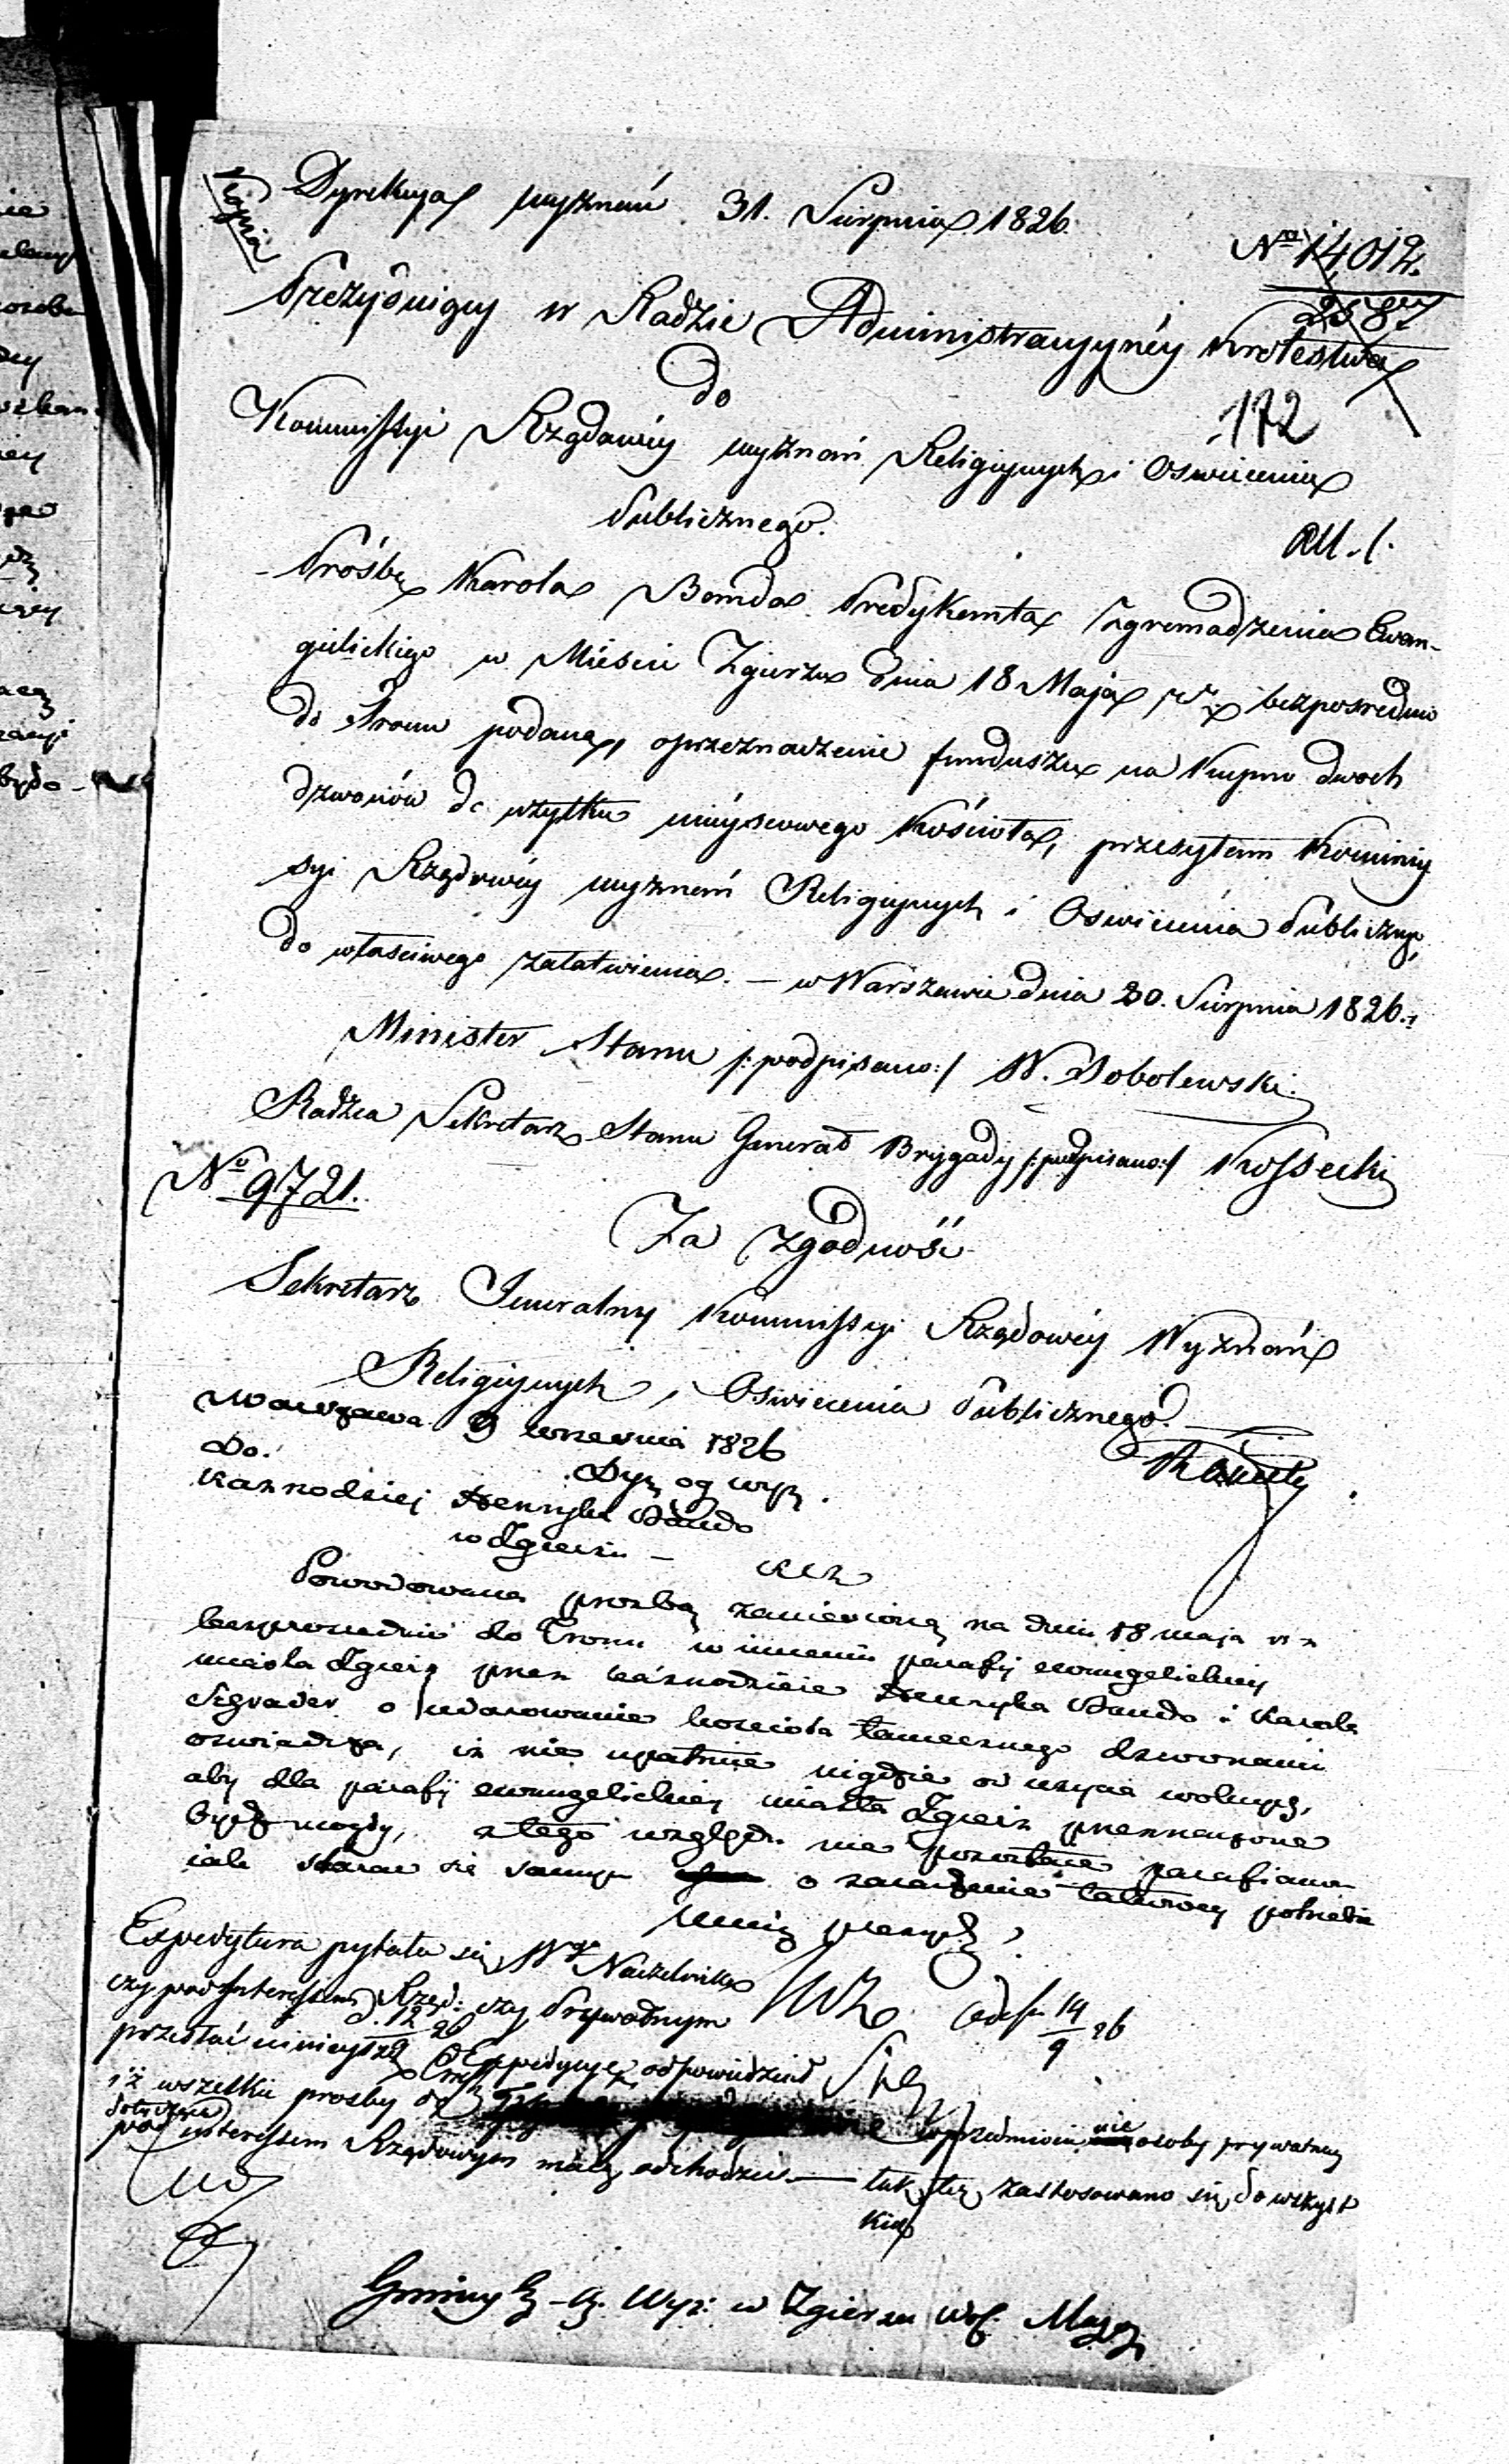 Kopia
Dyrekcya wyznań 31. Sierpnia 1826.
No 14,012.
2587
Prezyduiący w Radzie Administracyynéy Krolestwa
do
172
Kommissyi Rządowéy wyznań Religiynych i Oswiecenia
Publicznego.
Prośbę Karola Bando Predykanta Zgromadzenia Ewan-
gielickiego w Mieście Zgierzu dnia 18 Maja r. b. bezpośrednio
do Tronu podaną, o przeznaczenie funduszu na kupno dwoch
dzwonów do użytku mieyscowego Kościoła, przesyłam Kommis
syi Rządowéy wyznań Religiynych i Oswiecenia Publiczngo,
do właściwego załatwienia. — w Warszawie dnia 30. Sierpnia 1826.
Minister Stanu /:podpisano:/ W. Sobolewski.
Radzca Sekretarz Stanu Generał Brygady /:podpisano:/ Kossecki
No 9721.
Za zgodność
Sekretarz Jeneralny Kommissyi Rządowéy Wyznań
Religiynych i Oswiecenia Publicznego.
Warszawa 9 września 1826
Do.
Dyr. og wyz.
Kaznodziej Henryka Bando
w Zgierzu —
Powodowana prosbą zaniesioną na dniu 18 maja r. b.
bezposrednio do Tronu w imieniu parafij ewangelickiey
miasta Zgierz przez kaznodzieie Henryka Bando i Karola
o udarowanie koscioła tamecznego dzwonami
oswiadcza, iż nie upatruie nigdzie od uzycia wolnych,
aby dla parafij ewangelickiey miasta Zgierz przeznaczone
bydź mogły, z tego względu nie pozostaie parafianom
iak starac się samym o zaradzenie takowey potrzebie
Expedytura pytała się Wgo Naczelnika
czy pod Interessem Rząd: czy Prywatnym
przesłać ninieyszą Expedycye, odpowiedział
d. 12/9 26
14/9 26
iż wszelkie prosby
w przedmiocie nie osoby prywatney
dotyczące
pod interessem Rządowym maią odchodzić — tak też zastosowano się do wszyst
kich
Gminy Ew. Wyz. w Zgierzu Wof. Maz.